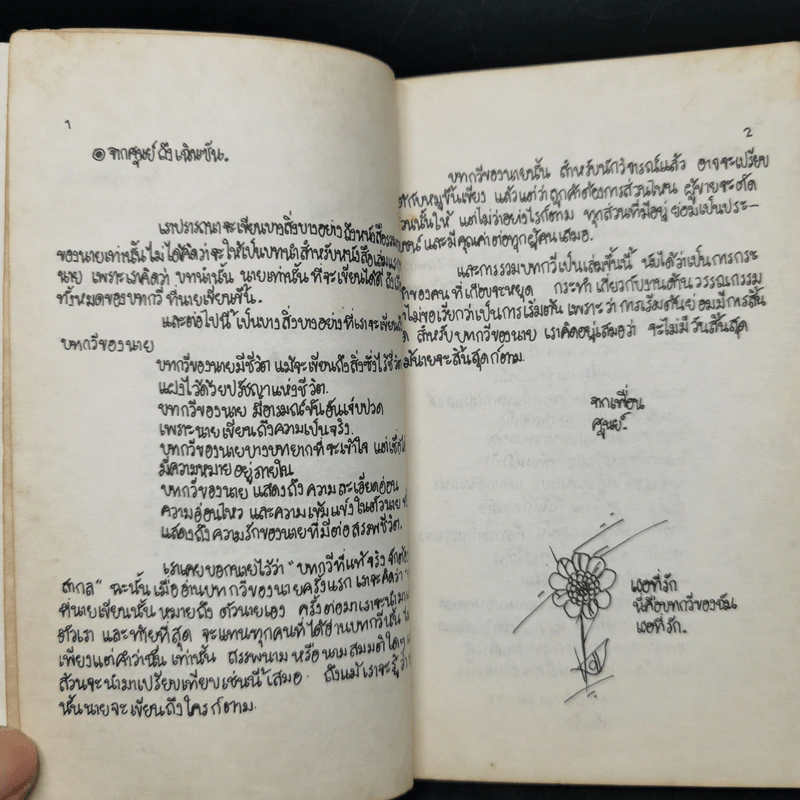 1
จากศูนย์ ถึง เฉินซัน.
เราปรารถนาจะเขียนบางสิ่งบางอย่าง ถึงหนังสือรวม
ของนายเท่านั้น ไม่ได้คิดว่าจะให้เป็นบทนำสำหรับหนังสือเล่มแรก
นาย เพราะเราคิดว่า บทนำนั้น นายเท่านั้น ที่จะเขียนได้ดี ถึง
ทั้งหมดของบทกวี ที่นายเขียนขึ้น.
และต่อไปนี้ เป็นบางสิ่งบางอย่างที่เราจะเขียน
บทกวีของนาย
บทกวีของนายมีชีวิต แม้จะเขียนถึงสิ่งซึ่งไร้ชีวิต
แฝงไว้ด้วยปรัชญาแห่งชีวิต.
บทกวีของนาย มีอารมณ์ขันอันเจ็บปวด
เพราะนายเขียนถึงความเป็นจริง.
บทกวีของนายบางบทยากที่จะเข้าใจ แต่
มีความหมายอยู่ภายใน
บทกวีของนาย แสดงถึงความละเอียดอ่อน
ความอ่อนไหว และความเข้มแข็งในตัวนาย
แสดงถึงความรักของนายที่มีต่อสรรพชีวิต.
เราเคยบอกนายไว้ว่า "บทกวีที่แท้จริง จักต้อง
สากล" ฉะนั้น เมื่ออ่านบทกวีของนายครั้งแรก เราจะคิดว่า
ที่นายเขียนนั้น หมายถึง ตัวนายเอง ครั้งต่อมาเราจะนำมา
ตัวเรา และท้ายที่สุด จะแทนทุกคนที่ได้อ่านบทกวีนั้น
เพียงแต่คำว่านั้นเท่านั้น สรรพนาม หรือนามสมมติใดๆ
ล้วนจะนำมาเปรียบเทียบเช่นนี้เสมอ ถึงแม้เราจะรู้
นั้นนายจะเขียนถึงใครก็ตาม.
2
บทกวีของนายนั้น สำหรับนักวิจารณ์แล้ว อาจจะเปรียบ
กับหมูขึ้นเขียง แล้วแต่ว่าลูกค้าต้องการส่วนไหน ผู้ขายจะตัด
วนนั้นให้ แต่ไม่ว่าอย่างไรก็ตาม ทุกส่วนที่มีอยู่ ย่อมเป็นประ-
และมีคุณค่าต่อทุกผู้คนเสมอ.
และการรวมบทกวีเป็นเล่มขึ้นนี้ นับได้ว่าเป็นการกระ
ของคนที่เกือบจะหยุด กระทำเกี่ยวกับงานด้านวรรณกรรม
าไม่ขอเรียกว่าเป็นการเริ่มต้น เพราะว่าการเริ่มต้นย่อมมีการสิ้น
สำหรับบทกวีของนาย เราคิดอยู่เสมอว่า จะไม่มีวันสิ้นสุด
นายจะสิ้นสุดก็ตาม.
จากเพื่อน
ศูนย์.
เธอที่รัก
นี่คือบทกวีของฉัน
เธอที่รัก.